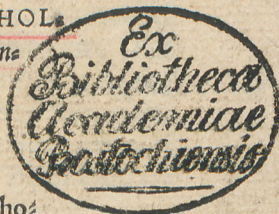 HOL⸗
n⸗
Ex
Bibliotheca
Academiae
Rostochiensis
ho⸗